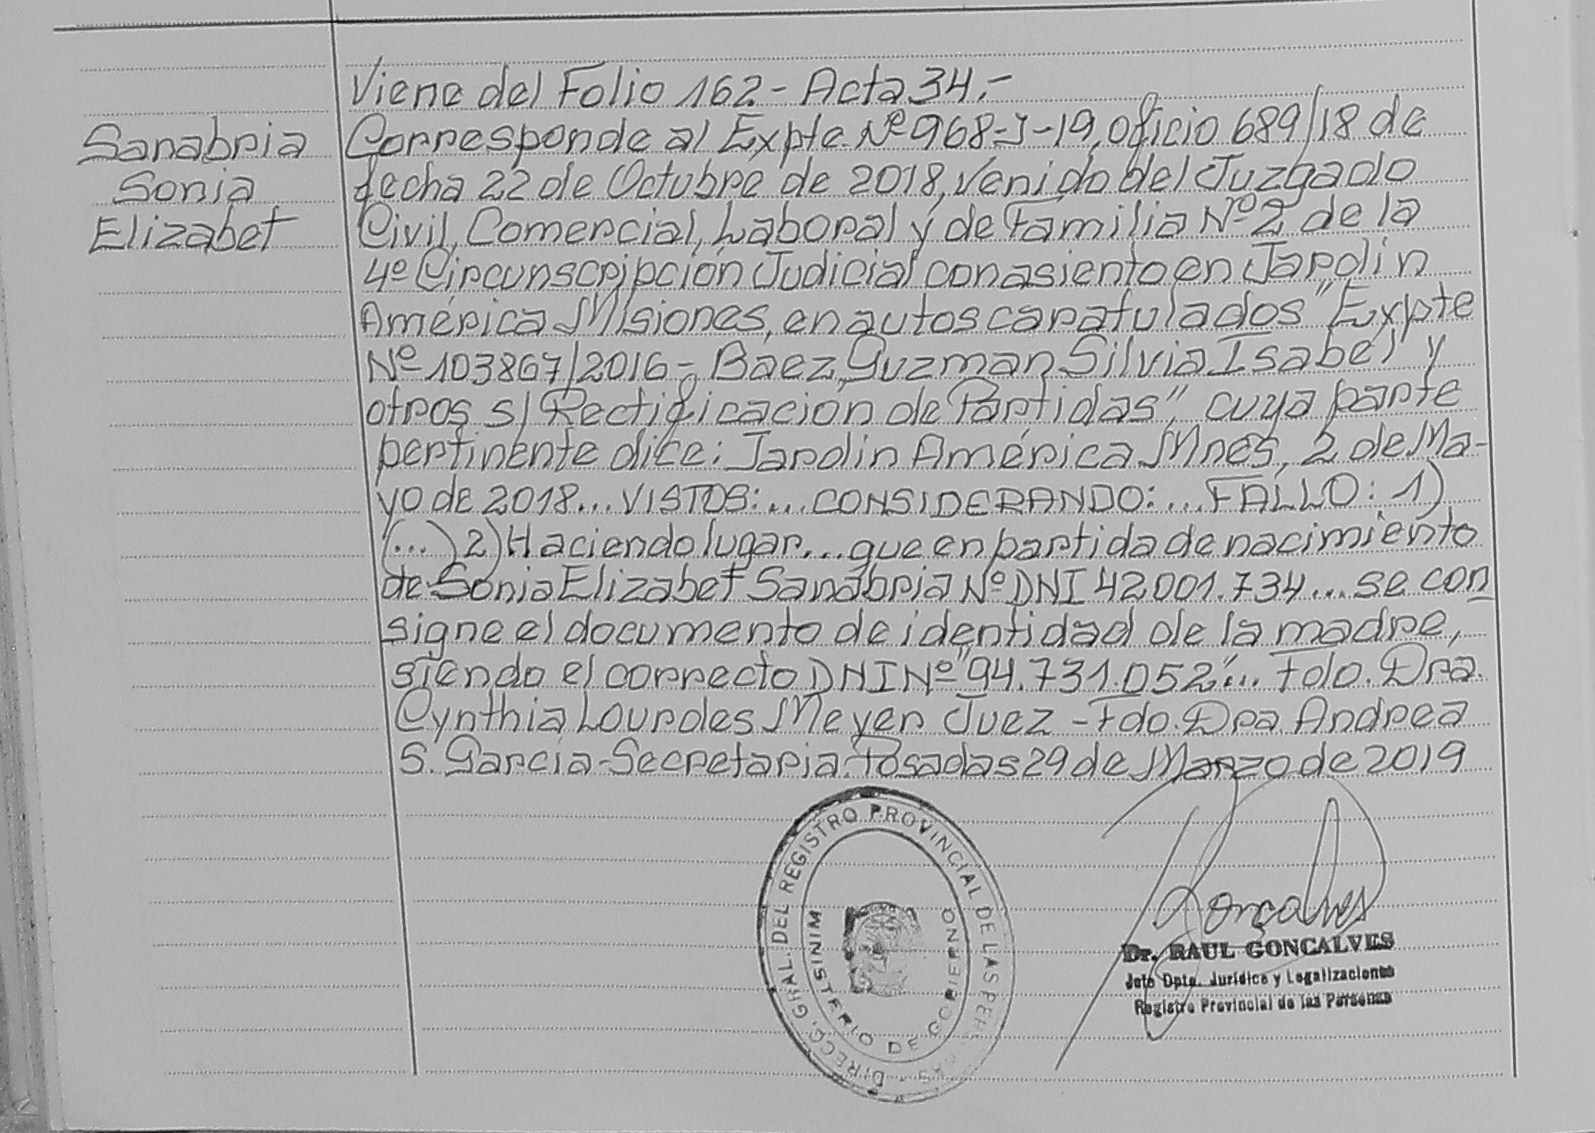 Viene del Folio 162 - Acta 34.-
Sanabria
Sonia
Elizabet
Corresponde al Expte. Nº 968-J-19, oficio 689/18 de
fecha 22 de Octubre de 2018, Venido del Juzgado
Civil, Comercial, Laboral y de Familia Nº 2 de la
4º Circunscripción Judicial con asiento en Jardin
América Misiones, en autos caratulados "Expte
Nº 103867/2016 - Baez Guzman Silvia Isabel y
otros s/ Rectificación de Partidas", cuya parte
pertinente dice: Jardin América Mnes, 2 de Ma-
yo de 2018... VISTOS:... CONSIDERANDO:... FALLO: 1)
(...) 2) Haciendo lugar... que en partida de nacimiento
de Sonia Elizabet Sanabria Nº DNI 42.001.734... se con
signe el documento de identidad de la madre,
siendo el correcto DNI Nº "94.731.052"... Fdo. Dra.
Cynthia Lourdes Meyer Juez - Fdo. Dra. Andrea
S. García - Secretaria. Posadas 29 de Marzo de 2019
DIRECC. GRAL. DEL REGISTRO PROVINCIAL DE LAS PERSONAS
MINISTERIO DE GOBIERNO
Goncalves
Dr. RAUL GONCALVES
Jefe Dpto. Jurídico y Legalizaciones
Registro Provincial de las Personas